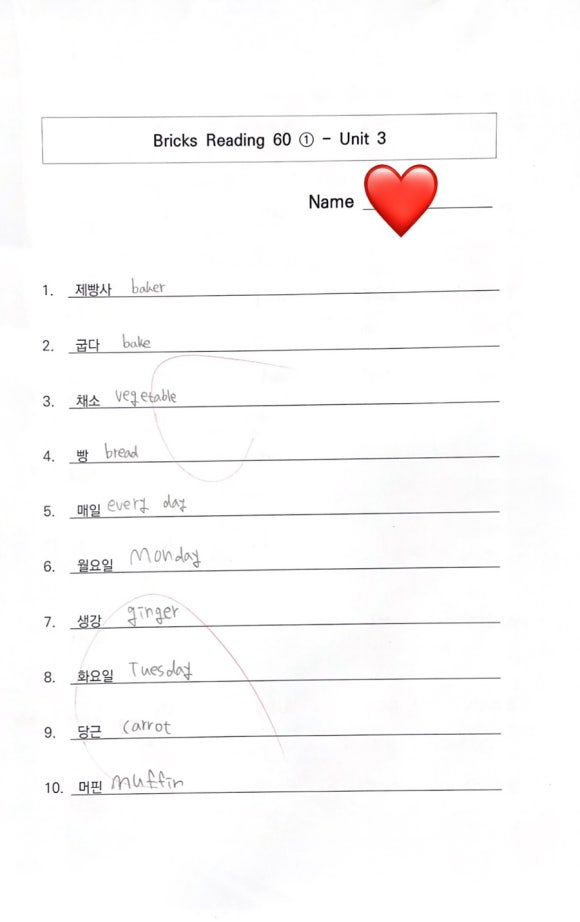 Bricks Reading 60 ① - Unit 3
Name
1. 제빵사 baker
2. 굽다 bake
3. 채소 vegetable
4. 빵 bread
5. 매일 every day
6. 월요일 Monday
7. 생강 ginger
8. 화요일 Tuesday
9. 당근 carrot
10. 머핀 muffin